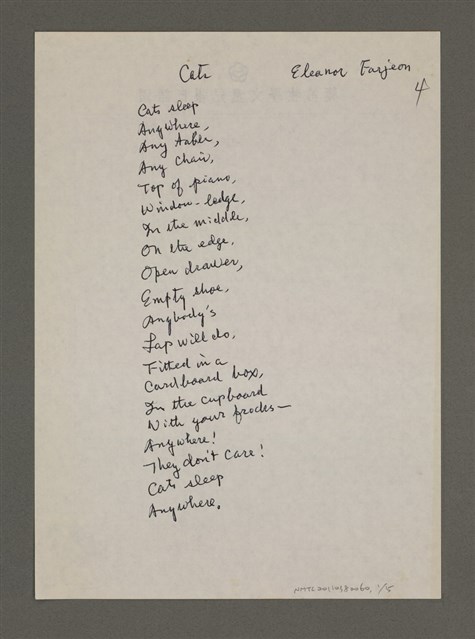 Cats Eleanor Farjeon
4
Cats sleep
Anywhere,
Any table,
Any chair,
Top of piano,
Window-ledge,
In the middle,
On the edge.
Open drawer,
Empty shoe,
Anybody's
Lap will do,
Fitted in a
Cardboard box,
In the cupboard
With your frocks—
Anywhere!
They don't care!
Cats sleep
Anywhere.